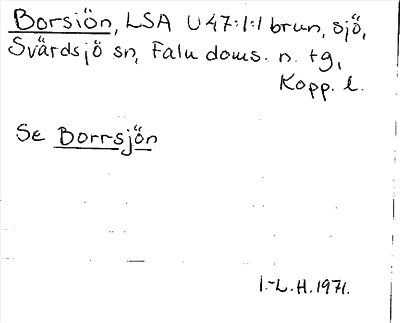 Borsiön, LSA U47:1:1 brun, sjö,
Svärdsjö sn, Falu doms. n. tg,
Kopp. l.
Se Borrsjön
I.-L.H.1971.